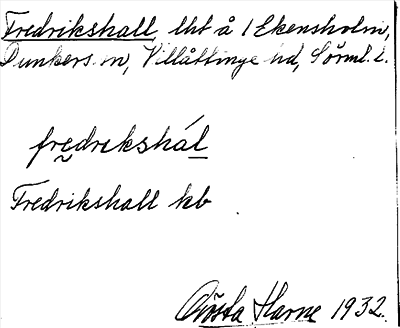 Fredrikshall, lht å 1 Ekensholm,
Dunkers sn, Villåttinge hd, Sörml. l.
fredrekshál
Fredrikshall kb
Gösta Harne 1932.